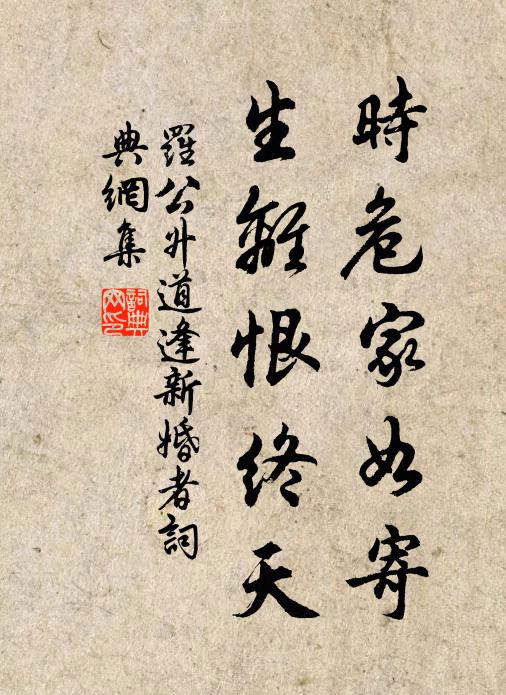 時危家如寄
生離恨終天
羅公升道逢新婚者詞
典網集
詞典
网印